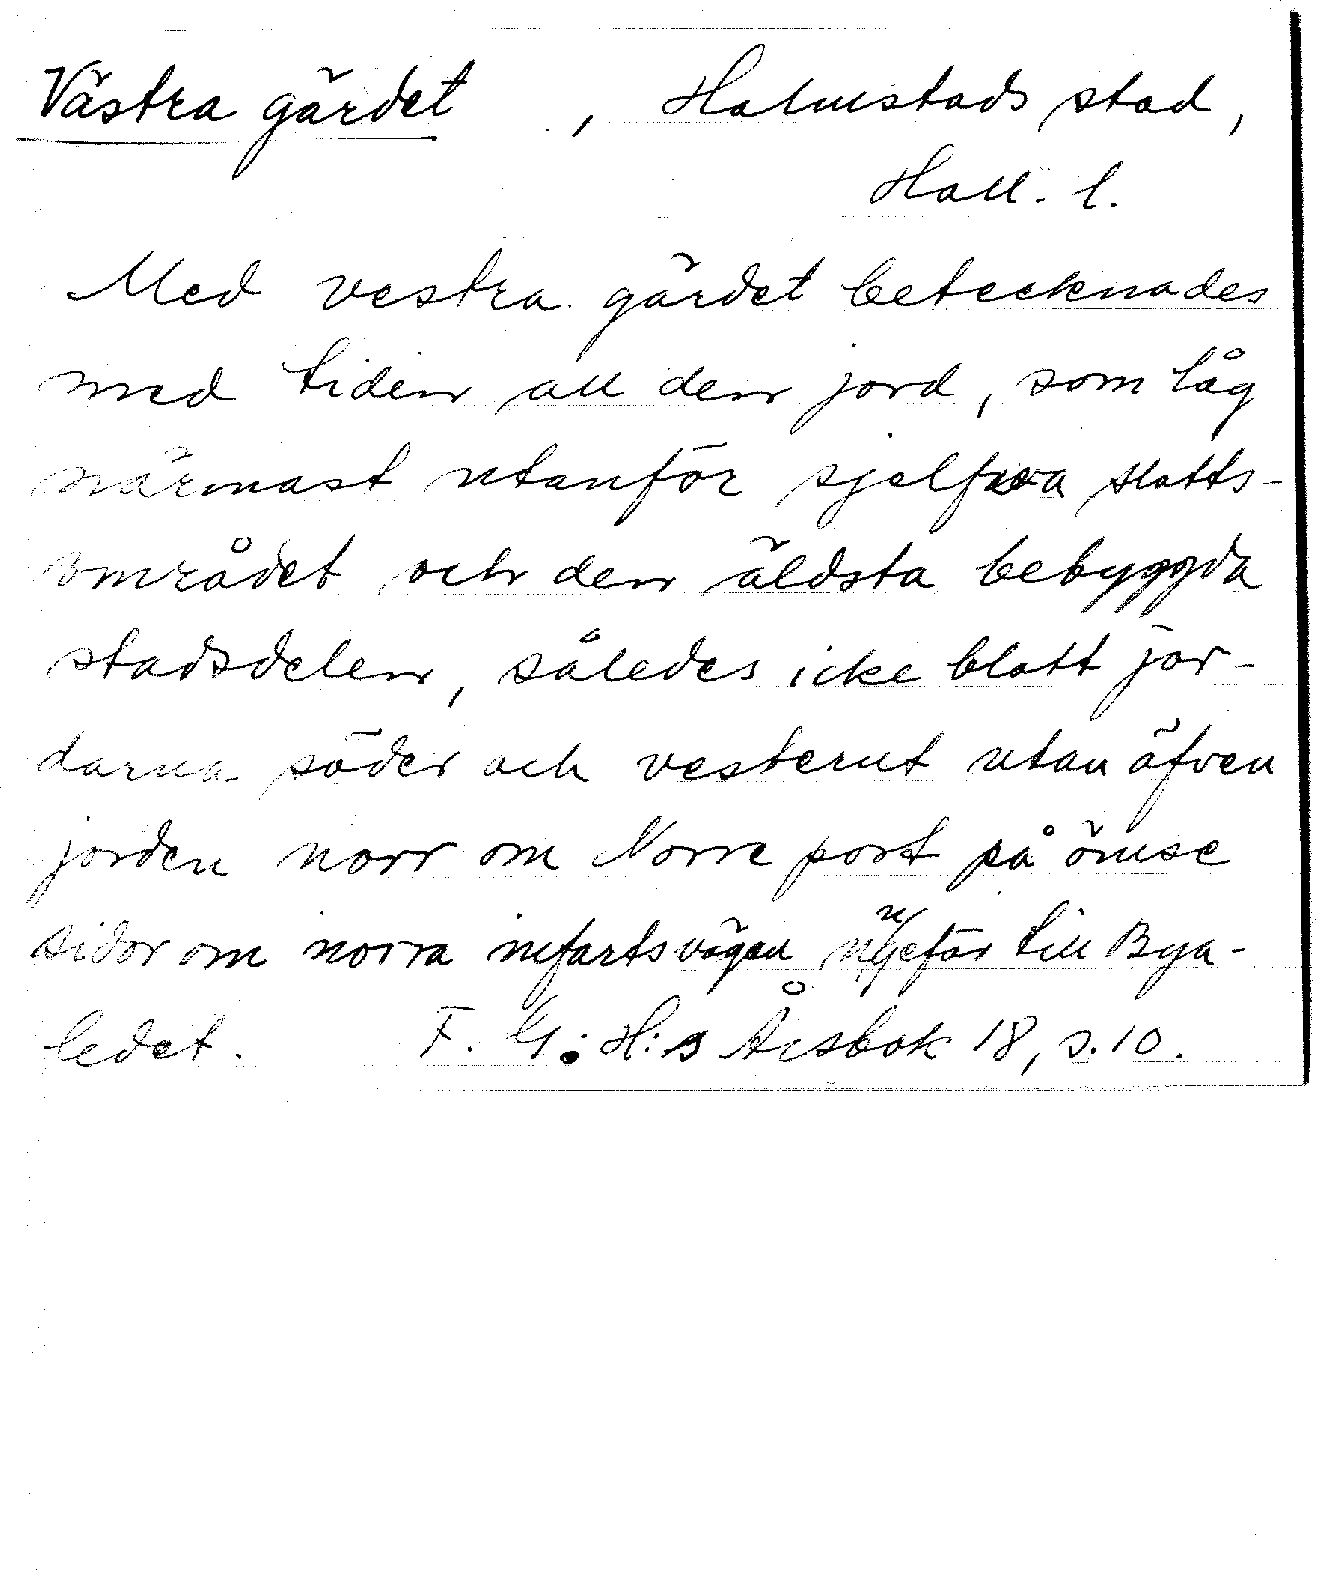 Västra gärdet, Halmstads stad,
Hall. l.
Med vestra gärdet betecknades
med tiden all den jord, som låg
närmast utanför sjelfva slotts-
området och den äldsta bebyggda
stadsdelen, således icke blott jor-
darna söder och vesterut utan äfven
jorden norr om Norre port på ömse
sidor om norra infartsvägen ungefär till Bya-
ledet. F. G: H:s Årsbok 18, s. 10.